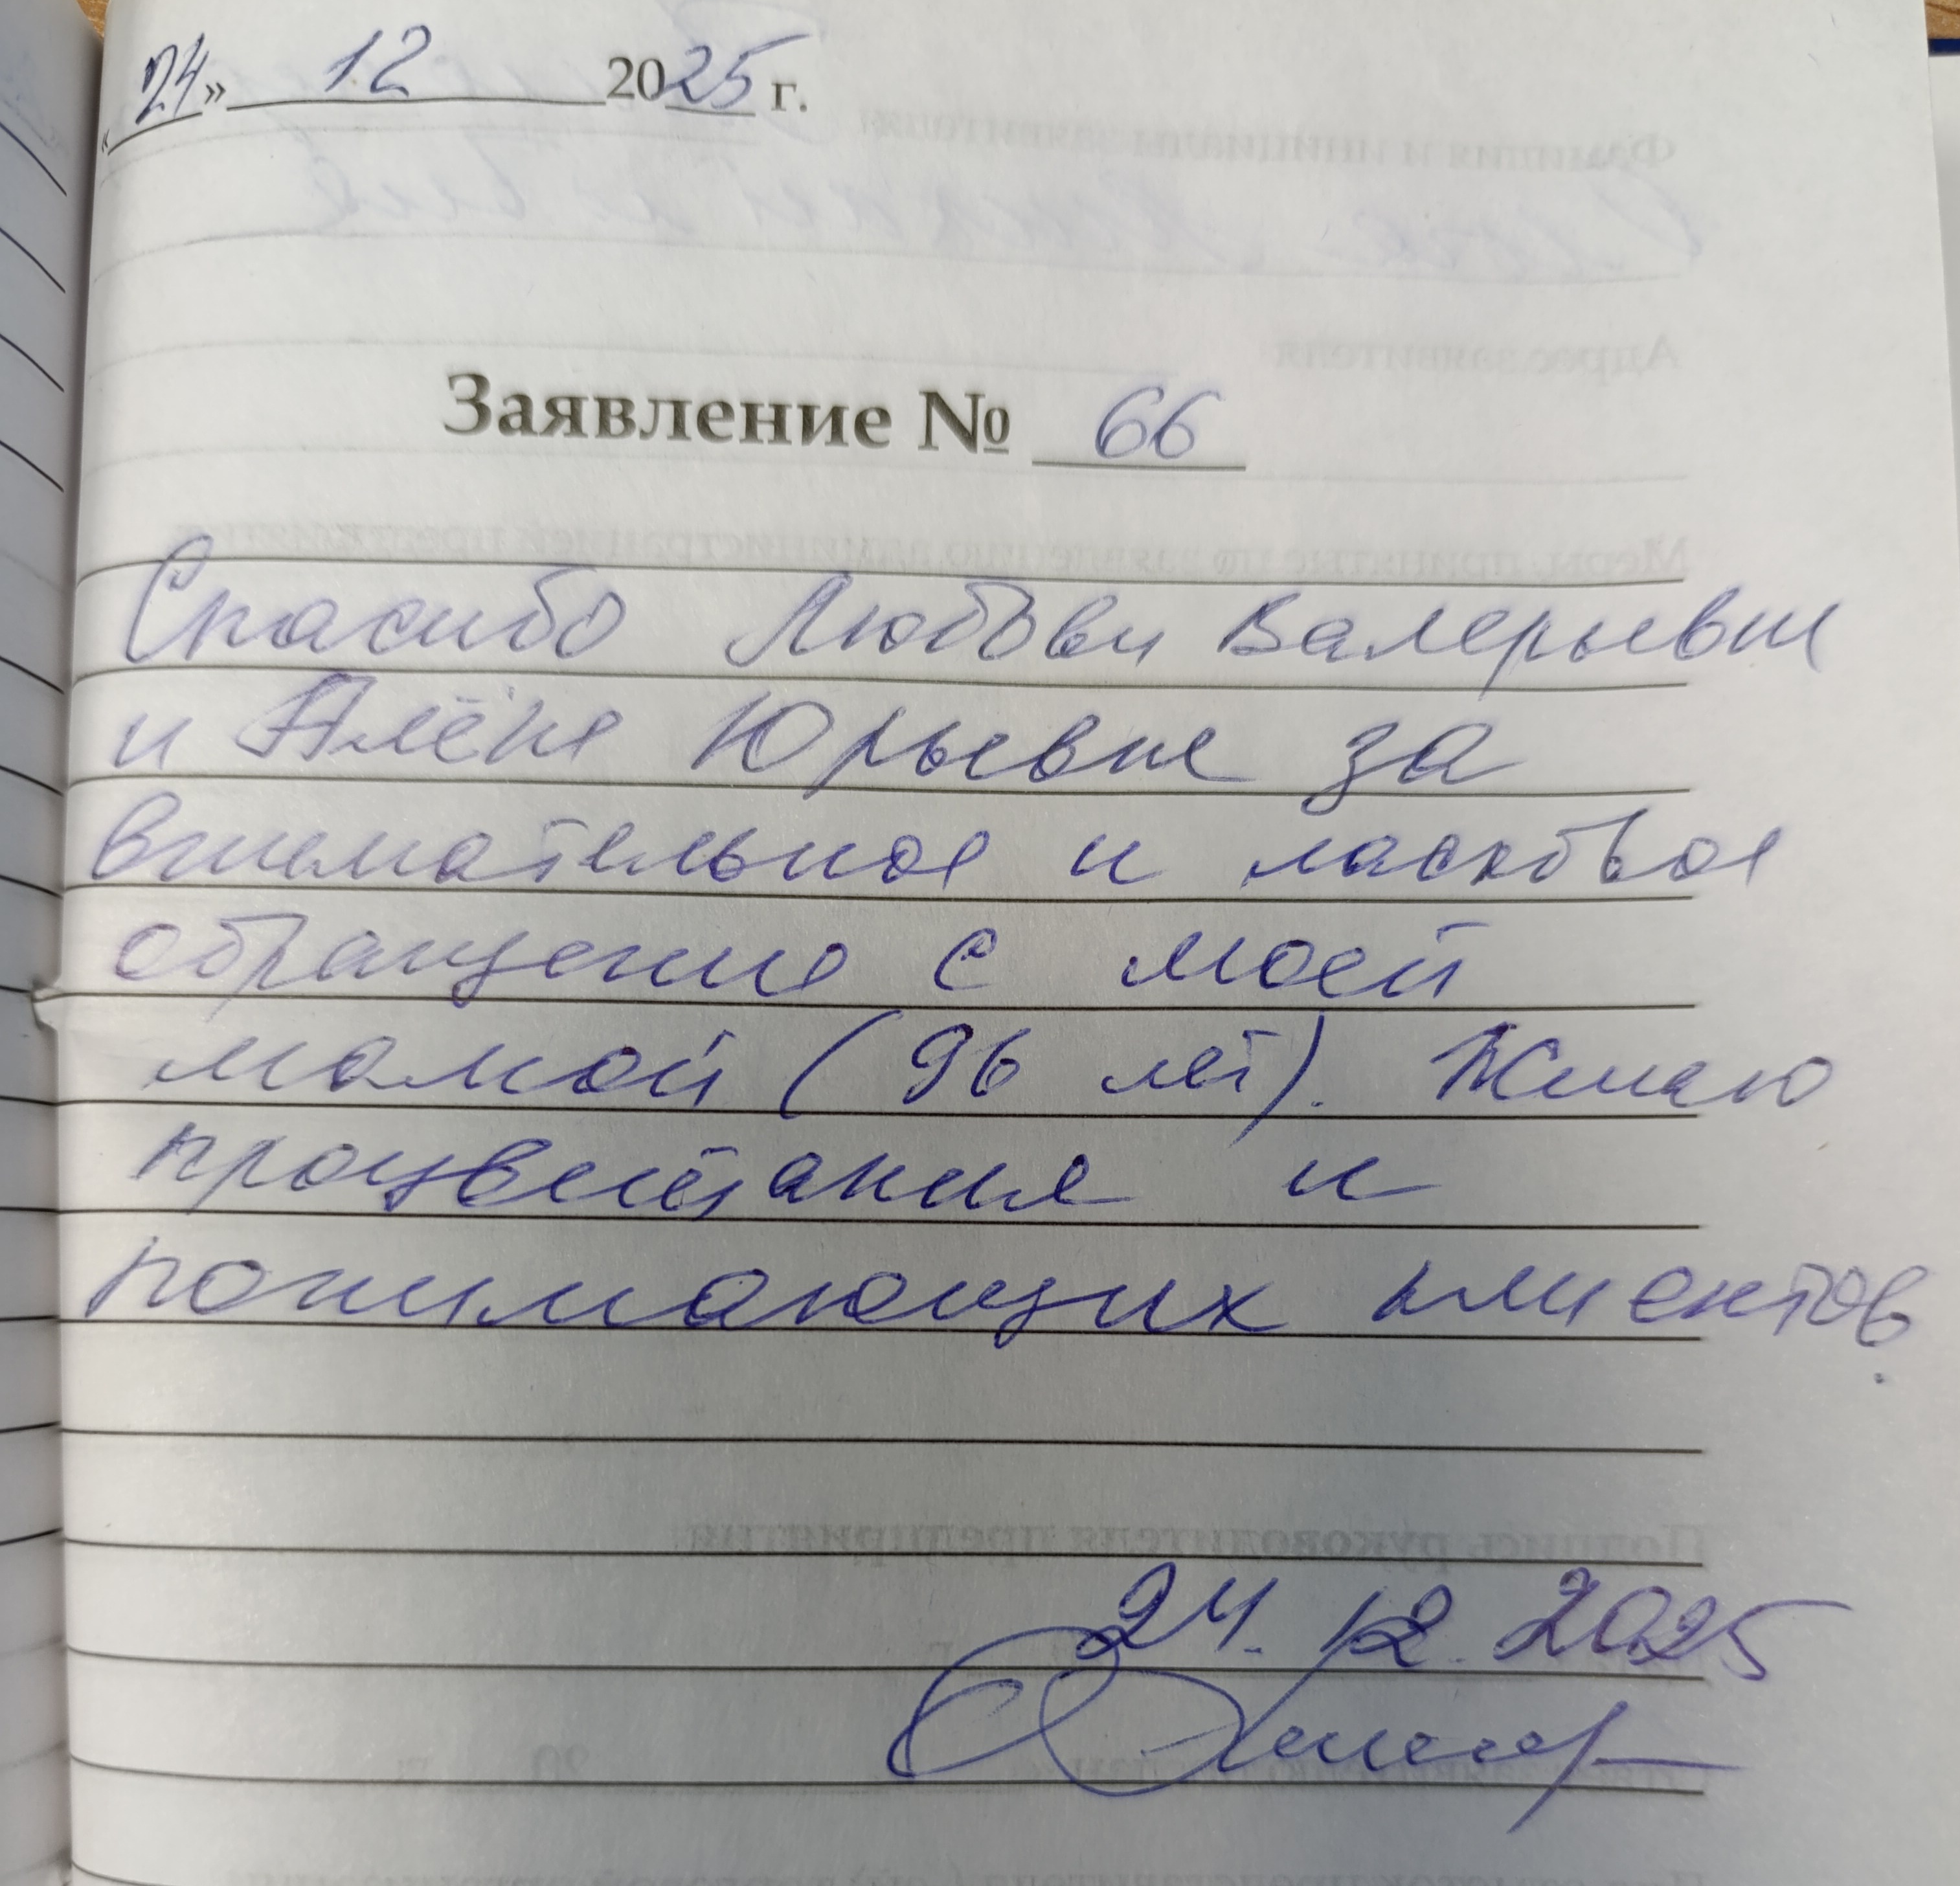 «24» 12 2025 г.
Заявление № 66
Спасибо Любови Валерьевне
и Алёне Юрьевне за
внимательное и ласковое
обращение с моей
мамой (96 лет). Желаю
процветания и
понимающих клиентов.
24.12.2025